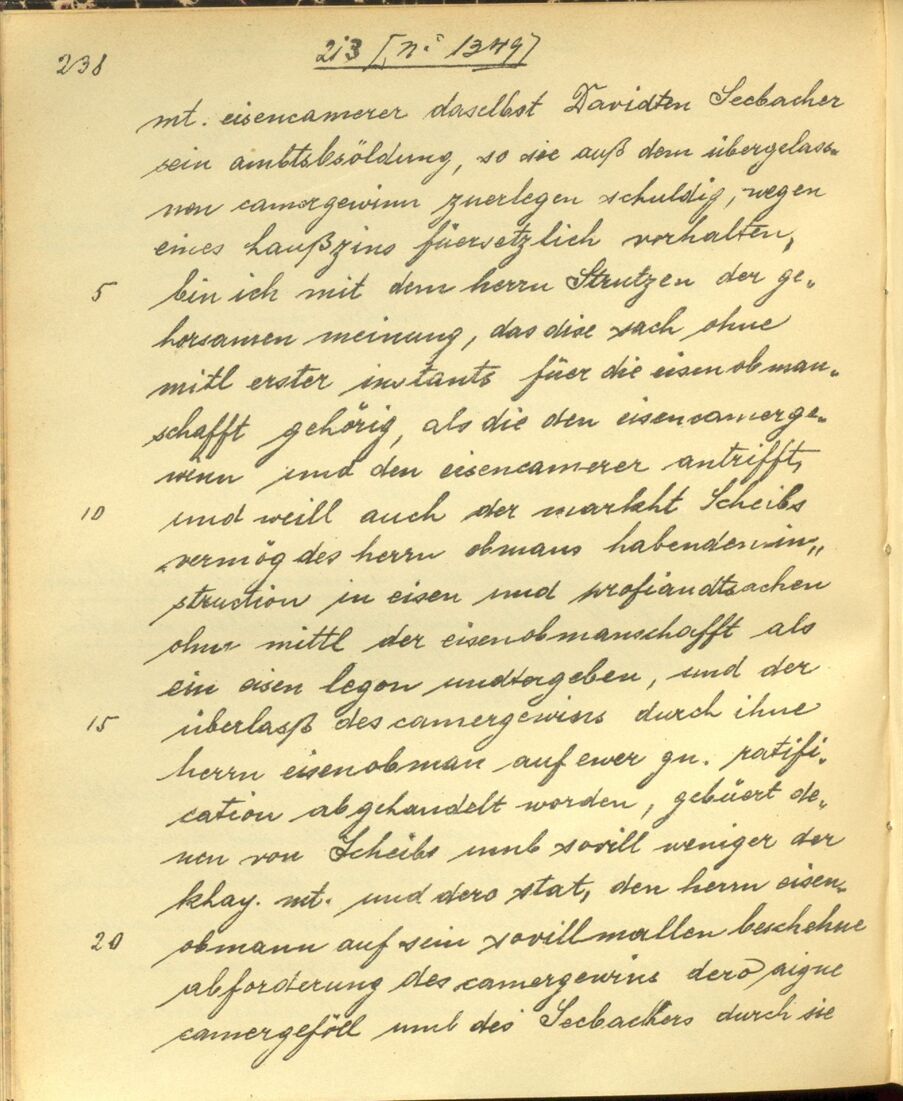 238
213 [Nº 1349]
mt. eisencamerer daselbst Davidten Seebacher
sein ambtsbsöldung, so sie auß dem übergelass„
nen camergewinn zuerlegen schuldig, wegen
eines haußzins füersetzlich vorhalten,
5 bin ich mit dem herrn Strutzen der ge„
horsamen meinung, das dise sach ohne
mitl erster instants füer die eisenobman„
schafft gehörig, als die den eisencamerge„
winn und den eisencamerer antrifft,
10 und weill auch der markht Scheibs
vermög des herrn obmans habenden in„
struction in eisen und profiandtsachen
ohne mittl der eisenobmanschafft als
ein eisen legon undtergeben, und der
15 überlaß des camergewins durch ihne
herrn eisenobman auf ewer gn. ratifi„
cation abgehandelt worden, gebüert de„
nen von Scheibs umb sovill weniger der
khay. mt. und dero stat, den herrn eisen„
20 obmann auf sein sovillmallen beschehne
abforderung des camergewins dero aigne
camergeföll umb des Seebachers durch sie